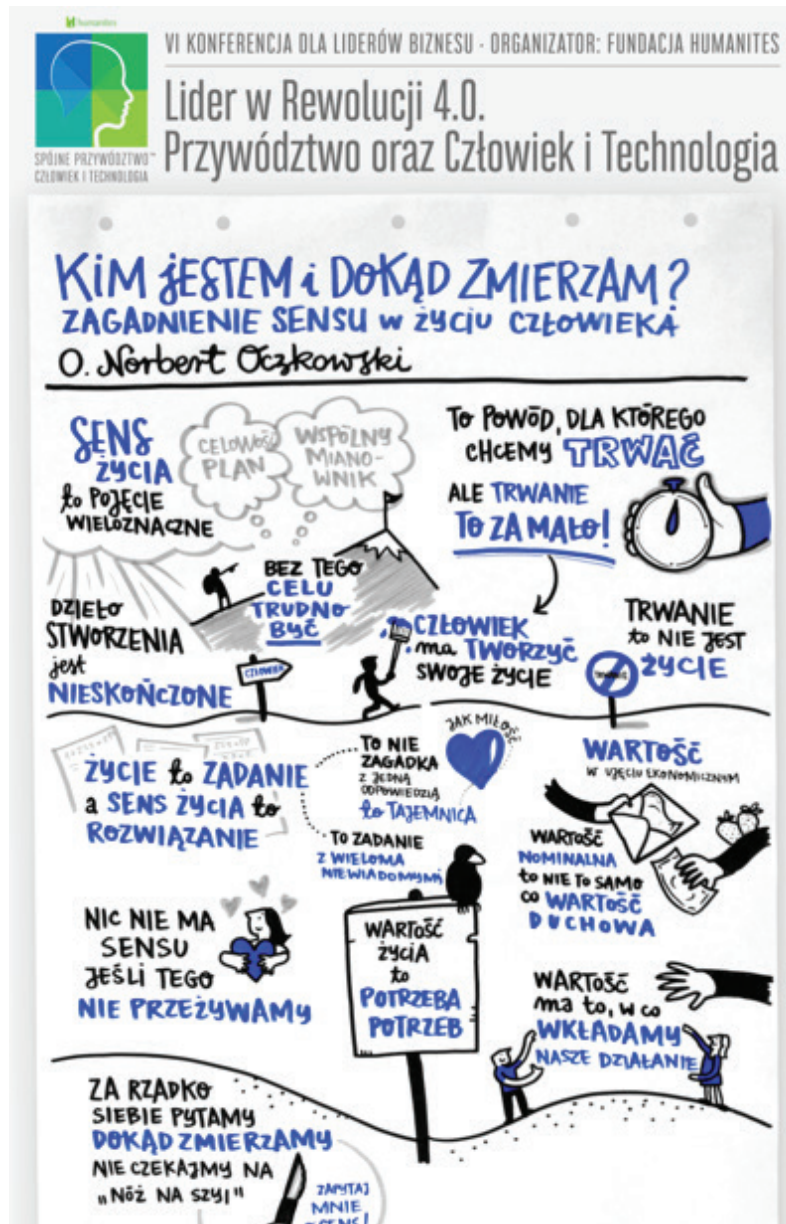 humanites
VI KONFERENCJA DLA LIDERÓW BIZNESU - ORGANIZATOR: FUNDACJA HUMANITES
Lider w Rewolucji 4.0.
Przywództwo oraz Człowiek i Technologia
SPÓJNE PRZYWÓDZTWO™
CZŁOWIEK I TECHNOLOGIA
KIM JESTEM i DOKĄD ZMIERZAM?
ZAGADNIENIE SENSU w ŻYCIU CZŁOWIEKA
O. Norbert Oczkowski
SENS
ŻYCIA
to POJĘCIE
WIELOZNACZNE
CELOWOŚĆ
PLAN
WSPÓLNY
MIANO-
WNIK
TO POWÓD, DLA KTÓREGO
CHCEMY TRWAĆ
ALE TRWANIE
TO ZA MAŁO!
BEZ TEGO
CELU
TRUDNO
BYĆ
DZIEŁO
STWORZENIA
jest
NIESKOŃCZONE
CZŁOWIEK
CZŁOWIEK
ma TWORZYĆ
SWOJE ŻYCIE
TRWANIE
to NIE JEST
ŻYCIE
TRWANIE
ŻYCIE to ZADANIE
a SENS ŻYCIA to
ROZWIĄZANIE
TO NIE
ZAGADKA
Z JEDNĄ
ODPOWIEDZIĄ
to TAJEMNICA
JAK MIŁOŚĆ
TO ZADANIE
Z WIELOMA
NIEWIADOMYMI
WARTOŚĆ
W UJĘCIU EKONOMICZNYM
WARTOŚĆ
NOMINALNA
to NIE TO SAMO
CO WARTOŚĆ
DUCHOWA
NIC NIE MA
SENSU
JEŚLI TEGO
NIE PRZEŻYWAMY
WARTOŚĆ
ŻYCIA
to
POTRZEBA
POTRZEB
WARTOŚĆ
ma to, w co
WKŁADAMY
NASZE DZIAŁANIE
ZA RZADKO
SIEBIE PYTAMY
DOKĄD ZMIERZAMY
NIE CZEKAJMY NA
„NÓŻ NA SZYI"
ZAPYTAJ
MNIE
SENS!